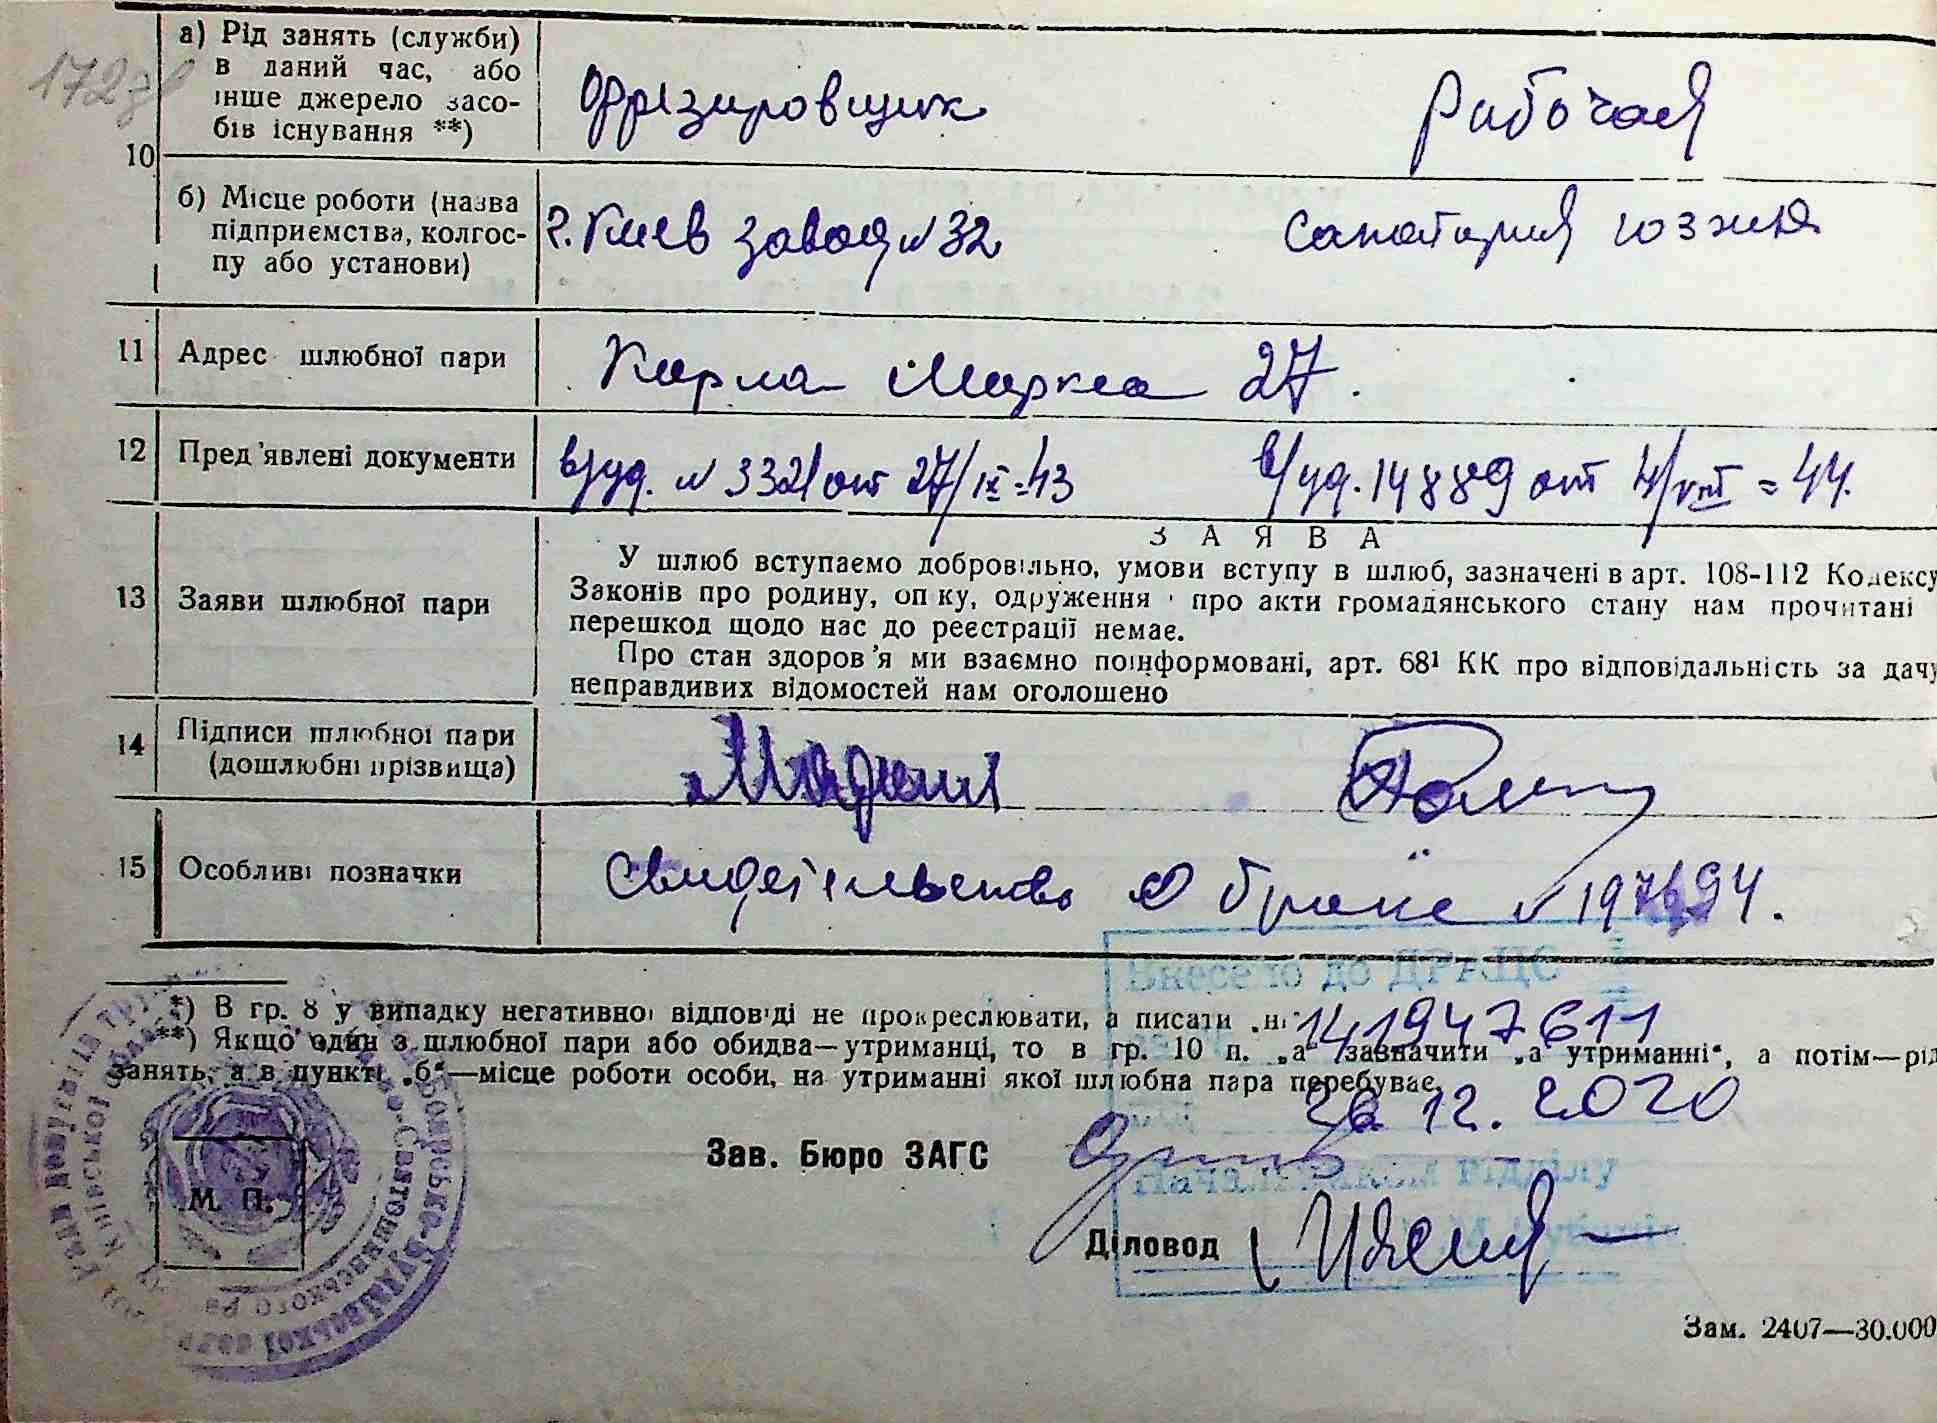 172
10
а) Рід занять (служби)
в даний час, або
інше джерело засо-
бів існування **)
Фрезировщик
Рабочая
б) Місце роботи (назва
підприємства, колгос-
пу або установи)
г. Киев завод № 32
Санатория
11 Адрес шлюбної пари
Карла Маркса 27.
12 Пред'явлені документи
в/уд. № 3321 от 27/IX-43
в/уд. 14889 от 4/VIII = 44.
ЗАЯВА
13 Заяви шлюбної пари
У шлюб вступаємо добровільно, умови вступу в шлюб, зазначені в арт. 108-112 Кодексу
Законів про родину, опіку, одруження і про акти громадянського стану нам прочитані
перешкод щодо нас до реєстрації немає.
Про стан здоров'я ми взаємно поінформовані, арт. 68¹ КК про відповідальність за дачу
неправдивих відомостей нам оголошено
14 Підписи шлюбної пари
(дошлюбні прізвища)
15 Особливі позначки
Свидетельство о браке № 197694.
*) В гр. 8 у випадку негативної відповіді не прокреслювати, а писати „ні“
**) Якщо один з шлюбної пари або обидва—утриманці, то в гр. 10 п. „а“ зазначити „а утриманні“, а потім—рід
занять, а в пункті „б“—місце роботи особи, на утриманні якої шлюбна пара перебуває.
Внесено до ДРАЦС
141947611
26.12.2020
Начальником відділу
Зав. Бюро ЗАГС
Діловод
М. П.
Зам. 2407—30.000